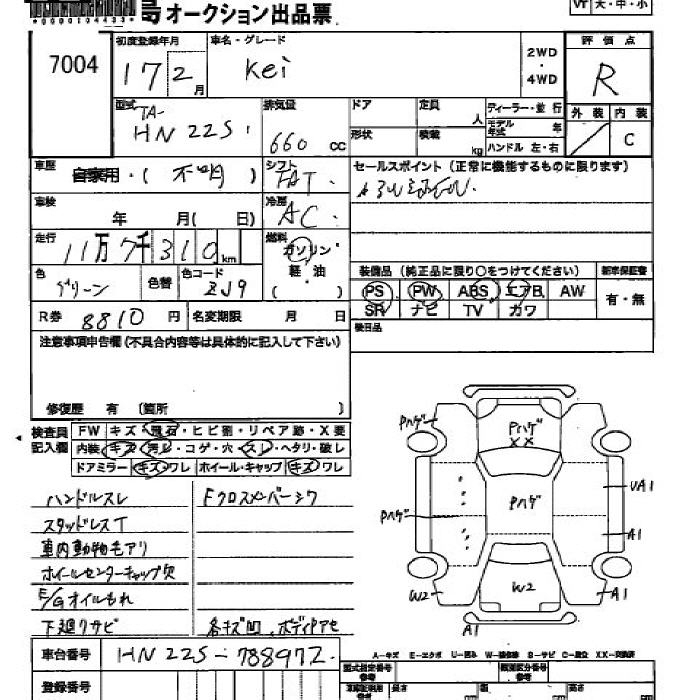 *0000104433*
号オークション出品票
VT 大・中・小
7004
初度登録年月
17 2月
車名・グレード
Kei
2WD
・
4WD
評価点
R
外装 内装
C
型式
TA-
HN22S
排気量
660 cc
ドア
定員
人
ディーラー・並行
モデル年式
年
形状
積載
kg
ハンドル 左・右
車歴
自家用・(不明)
シフト
FAT
セールスポイント(正常に機能するものに限ります)
車検
年 月( 日)
冷房
AC
走行
11万7千310km
燃料
ガソリン・
軽・油
( )
色
グリーン
色替
色コード
ZJ9
装備品(純正品に限り○をつけてください)
新車保証書
PS PW ABS エアB AW
有・無
SR ナビ TV カワ
R券
8810円
名変期限 月 日
後日品
注意事項申告欄(不具合内容等は具体的に記入して下さい)
修復歴 有〔箇所 〕
検査員
記入欄
FW キズ・飛石・ヒビ割・リペア跡・X要
内装 キズ・汚レ・コゲ・穴・スレ・ヘタリ・破レ
ドアミラー キズ・ワレ ホイール・キャップ キズ・ワレ
ハンドルスレ
Fクロスメンバーシワ
スタッドレスT
車内動物毛アリ
ホイールセンターキャップ欠
E/Gオイルもれ
下廻リサビ
各キズ凹、ボディアセ
Pハゲ
Pハゲ
XX
Pハゲ
Pハゲ
UA1
A1
W2
W2
A1
A1
A-キズ E-エクボ U-凹み W-補修跡 S-サビ C-腐食 XX-交換済
車台番号
HN22S-788972
登録番号
型式指定番号
類別区分番号
長さ
幅
高さ